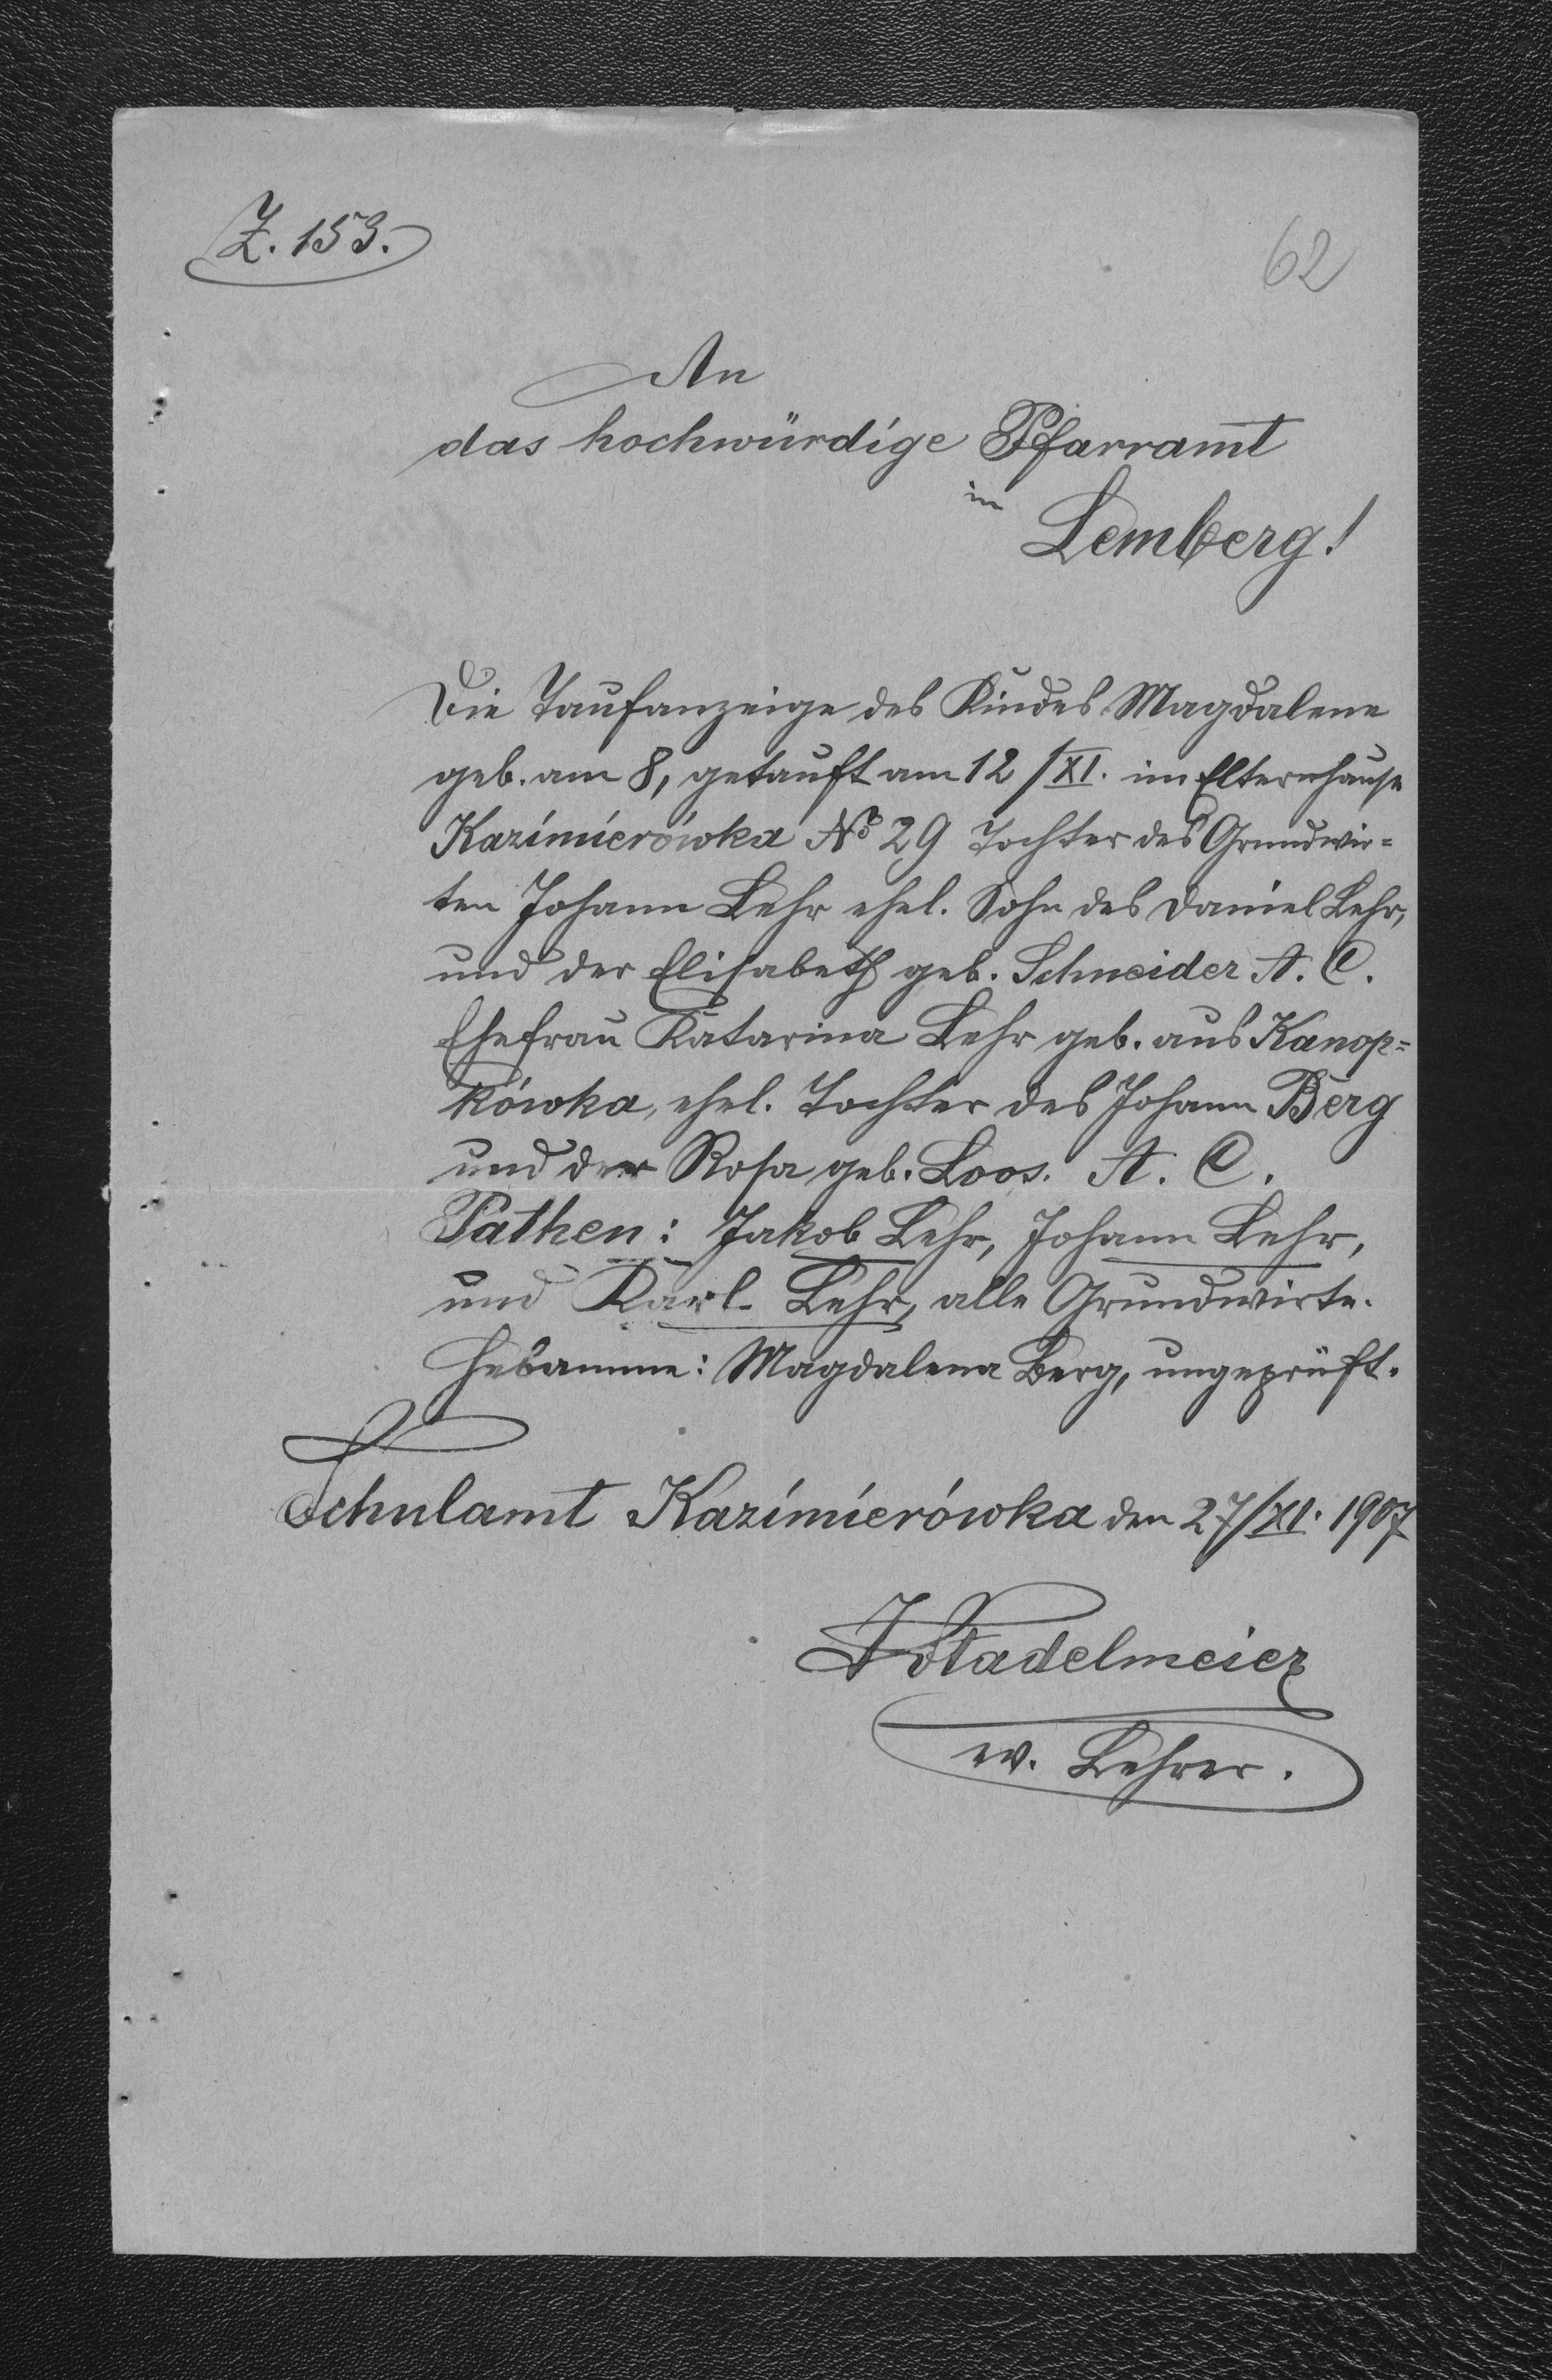 Z. 153.
62
An
das hochwürdige Pfarramt
in
Lemberg!
Die Taufanzeige des Kindes Magdalene
geb. am 8, getauft am 12/XI. im Elternhause
Kazimierówka No 29 Tochter des Grundwir=
ten Johann Lehr ehel. Sohn des Daniel Lehr,
und der Elisabeth geb. Schneider A. C.
Ehefrau Katarina Lehr geb. aus Kanop=
kówka, ehel. Tochter des Johann Berg
und der Rosa geb. Loos. A. C.
Pathen: Jakob Lehr, Johann Lehr,
und Karl Lehr, alle Grundwirte.
Hebamme: Magdalena Berg, ungeprüft.
Schulamt Kazimierówka den 27/XI. 1907
Stadelmeier
ev. Lehrer.